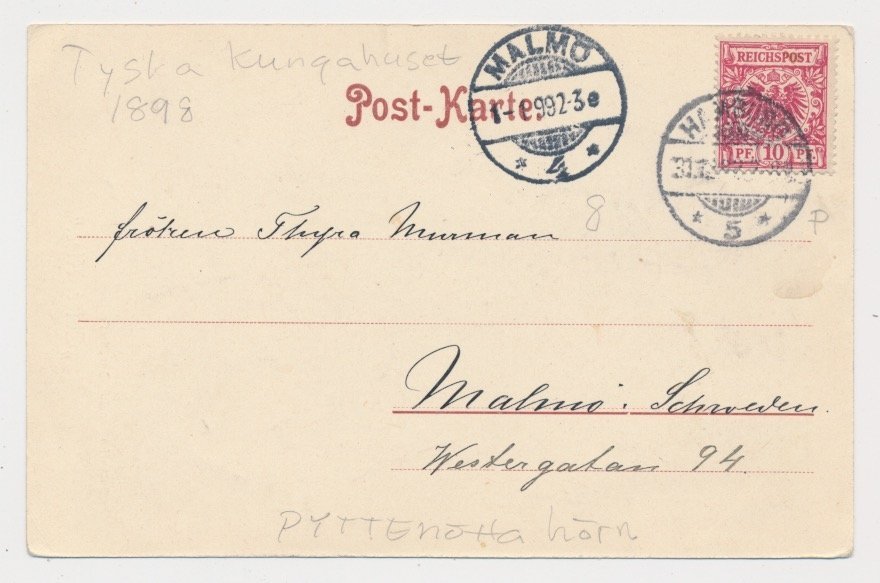 Tyska Kungahuset
1898
Post-Karte.
MALMÖ
1-1.99 2-3e
4
REICHSPOST
PF. 10 PF.
HAMBURG
5
8
p
fröken Thyra Murman
Malmö. Schweden.
Westergatan 94.
hörn